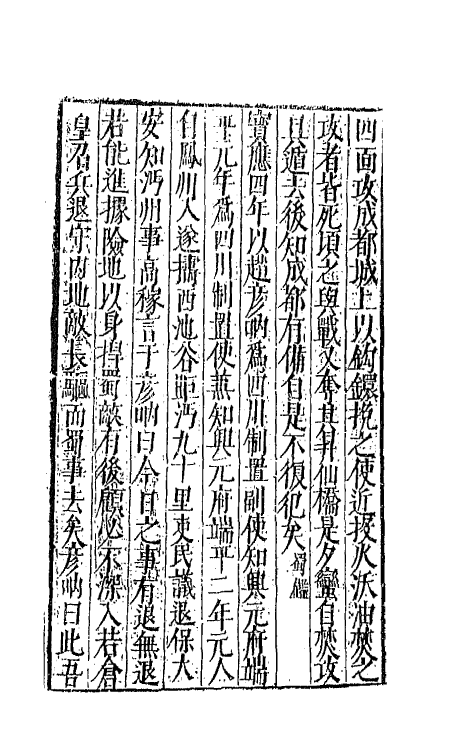 四面攻成都城上以鈎鐶挽之使近投火沃油焚之
攻者皆死頃之與戰又奪其昇仙橋是夕蠻自焚攻
具遁去後知成都有備自是不復犯矣蜀鑑
寶應四年以趙彦吶爲四川制置副使知興元府端
平元年爲四川制置使兼知興元府端平二年元人
自鳳州入遂擣西池谷距沔九十里吏民議退保大
安知沔州事高稼言于彦吶曰今日之事有退無退
若能進據險地以身捍蜀敵有後顧必不深入若倉
皇召兵退守內地敵長驅而蜀事去矣彦吶曰此吾